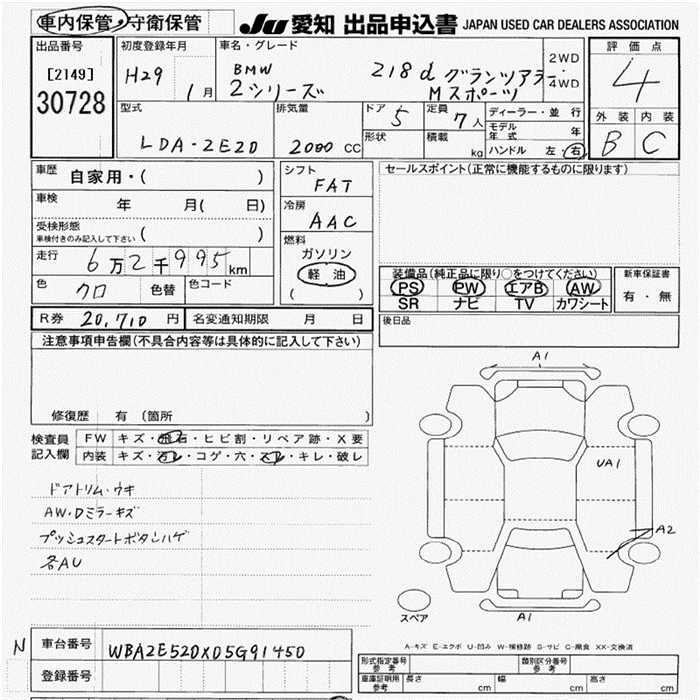 車内保管・守衛保管
JU 愛知 出品申込書 JAPAN USED CAR DEALERS ASSOCIATION
出品番号
[2149]
30728
初度登録年月
H29 1月
車名・グレード
BMW
2シリーズ
218d グランツアラー・
Mスポーツ
2WD
4WD
評価点
4
外装 内装
B C
型式
LDA-2E20
排気量
2000 CC
ドア 5
形状
定員 7人
積載 kg
ディーラー・並行
モデル年式 年
ハンドル 左・右
車歴 自家用・( )
車検 年 月( 日)
受検形態
車検付きのみ記入して下さい ( )
走行 6万2千995km
色 クロ 色替 色コード
シフト
FAT
冷房
AAC
燃料
ガソリン
軽油
( )
セールスポイント(正常に機能するものに限ります)
装備品(純正品に限り○をつけてください)
PS PW エアB AW
SR ナビ TV カワシート
新車保証書
有・無
R券 20,710円 名変通知期限 月 日
後日品
注意事項申告欄(不具合内容等は具体的に記入して下さい)
修復歴 有(箇所 )
検査員
記入欄
FW キズ・飛石・ヒビ割・リペア跡・X要
内装 キズ・汚レ・コゲ・穴・スレ・キレ・破レ
ドアトリム・ウキ
AW・Dミラーキズ
プッシュスタートボタンハゲ
各AU
A1
UA1
A2
A1
スペア
A-キズ E-エクボ U-凹み W-補修跡 S-サビ C-腐食 XX-交換済
N 車台番号 WBA2E520XD5G91450
登録番号
形式指定番号
参考
類別区分番号
参考
車庫証明用
参考
長さ cm 幅 cm 高さ cm